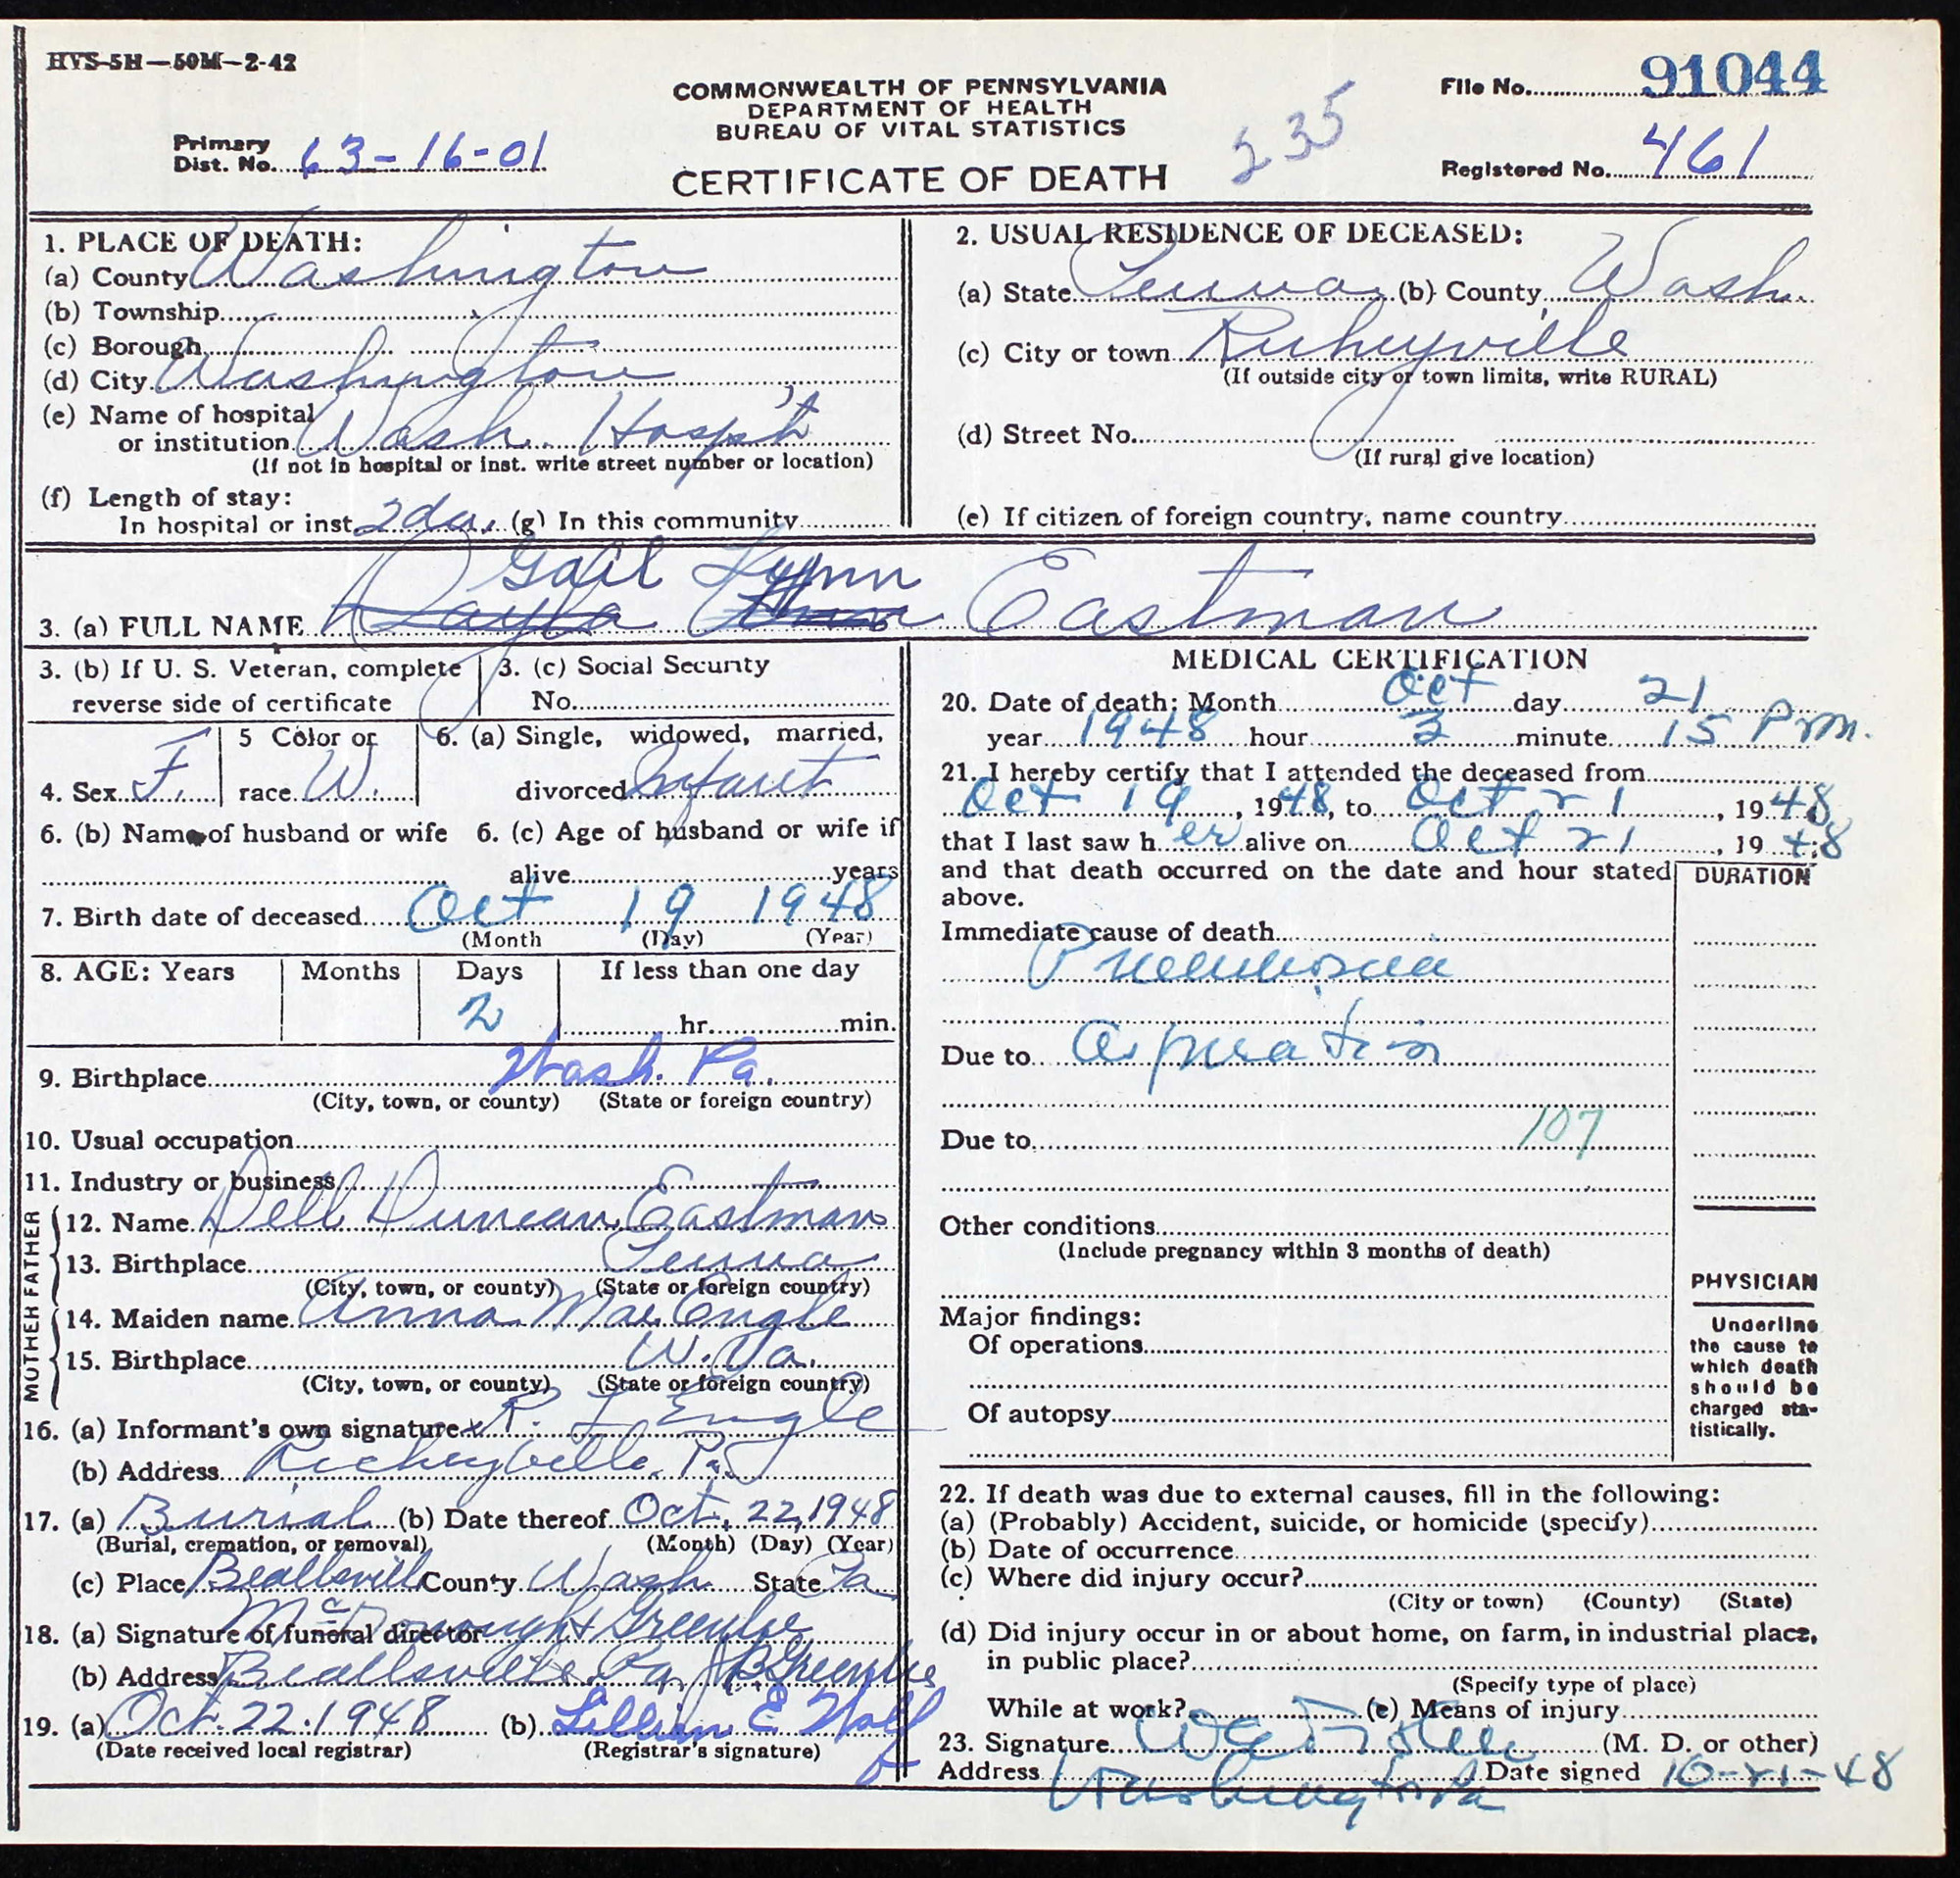 HVS-5H—50M—2-42
COMMONWEALTH OF PENNSYLVANIA
DEPARTMENT OF HEALTH
BUREAU OF VITAL STATISTICS
CERTIFICATE OF DEATH
235
File No. 91044
Primary
Dist. No. 63-16-01
Registered No. 461
1. PLACE OF DEATH:
(a) County Washington
(b) Township
(c) Borough
(d) City Washington
(e) Name of hospital
or institution Wash. Hosp't
(If not in hospital or inst. write street number or location)
(f) Length of stay:
In hospital or inst. 2 da. (g) In this community
2. USUAL RESIDENCE OF DECEASED:
(a) State Penna (b) County Wash.
(c) City or town Richeyville
(If outside city or town limits, write RURAL)
(d) Street No.
(If rural give location)
(e) If citizen of foreign country, name country
Gail Lynn
3. (a) FULL NAME Eastman
3. (b) If U. S. Veteran, complete
reverse side of certificate
3. (c) Social Security
No.
4. Sex F.
5 Color or
race W.
6. (a) Single, widowed, married,
divorced Infant
6. (b) Name of husband or wife
6. (c) Age of husband or wife if
alive years
7. Birth date of deceased Oct 19 1948
(Month (Day) (Year)
8. AGE: Years Months Days If less than one day
2 hr. min.
9. Birthplace Wash. Pa.
(City, town, or county) (State or foreign country)
10. Usual occupation
11. Industry or business
FATHER
12. Name Dell Duncan Eastman
13. Birthplace Penna
(City, town, or county) (State or foreign country)
MOTHER
14. Maiden name Anna Mae Engle
15. Birthplace W. Va.
(City, town, or county) (State or foreign country)
16. (a) Informant's own signature x R. L Engle
(b) Address Richeyville, Pa.
17. (a) Burial (b) Date thereof Oct. 22, 1948
(Burial, cremation, or removal) (Month) (Day) (Year)
(c) Place Beallsville County Wash State Pa
18. (a) Signature of funeral director McDonough & Greenlee
(b) Address Beallsville Pa. Greenlee
19. (a) Oct. 22. 1948 (b) Lillian E Wolf
(Date received local registrar) (Registrar's signature)
MEDICAL CERTIFICATION
20. Date of death: Month Oct day 21
year 1948 hour 3 minute 15 Pm.
21. I hereby certify that I attended the deceased from
Oct 19, 1948, to Oct 21, 1948,
that I last saw her alive on Oct 21, 1948;
and that death occurred on the date and hour stated
above.
DURATION
Immediate cause of death
Pneumonia
Due to Aspiration
Due to 107
Other conditions
(Include pregnancy within 3 months of death)
Major findings:
Of operations
Of autopsy
PHYSICIAN
Underline
the cause to
which death
should be
charged sta-
tistically.
22. If death was due to external causes, fill in the following:
(a) (Probably) Accident, suicide, or homicide (specify)
(b) Date of occurrence
(c) Where did injury occur?
(City or town) (County) (State)
(d) Did injury occur in or about home, on farm, in industrial place,
in public place?
(Specify type of place)
While at work? (e) Means of injury
23. Signature (M. D. or other)
Address Washington Pa Date signed 10-21-48